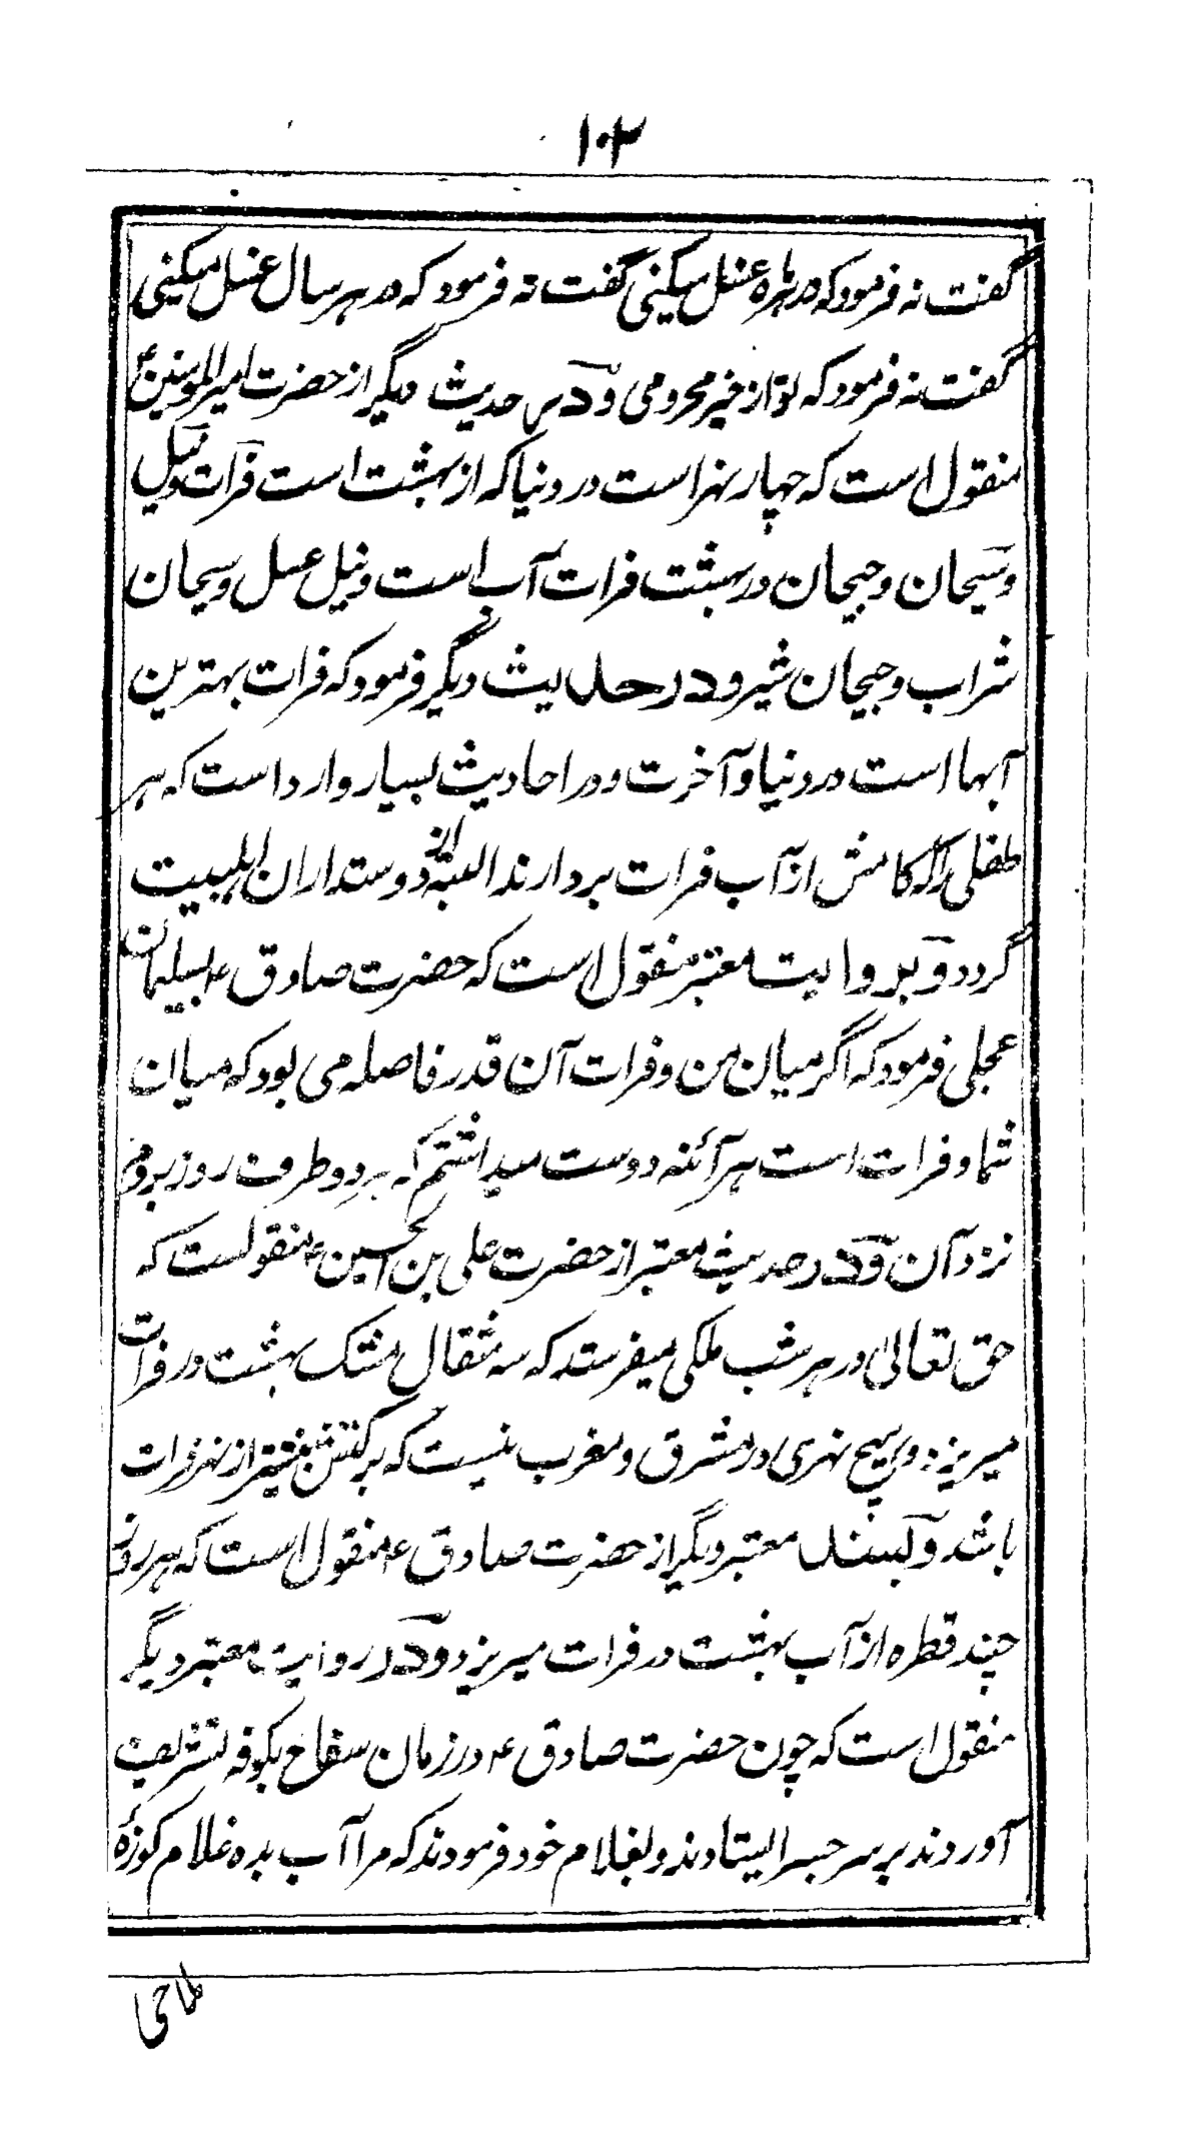 ۱۰۲
گفت نه فرمود که در هر ماه غسل میکنی گفت نه فرمود که در هر سال غسل میکنی
گفت نه فرمود که تو از خیر محرومی و در حدیث دیگر از حضرت امیرالمومنین ع
منقول است که چهار نهر است در دنیا که از بهشت است فرات و نیل
و سیحان و جیحان در بهشت فرات آب است و نیل عسل و سیحان
شراب و جیحان شیر و در حدیث دیگر فرمود که فرات بهترین
آبها است در دنیا و آخرت و در احادیث بسیار وارد است که هر
طفلی را که کامش از آب فرات بردارند البته از دوستداران اهلبیت
گردد و بروایت معتبر منقول است که حضرت صادق ع بسلیمان
عجلی فرمود که اگر میان من و فرات آن قدر فاصله می بود که میان
شما و فرات است هر آئنه دوست میداشتم که هر دو طرف روز بروم
نزد آن و در حدیث معتبر از حضرت علی بن الحسین ع منقولست که
حق تعالی در هر شب ملکی میفرستد که سه مثقال مشک بهشت در فرات
میریزد و هیچ نهری در مشرق و مغرب نیست که برکتش بیشتر از نهر فرات
باشد و بسند معتبر دیگر از حضرت صادق ع منقول است که هر روز
چند قطره از آب بهشت در فرات میریزد و در روایت معتبر دیگر
منقول است که چون حضرت صادق ع در زمان سفاح بکوفه تشریف
آوردند بر سر جسر ایستادند و بغلام خود فرمودند که مرا آب بده غلام کوزهٔ
ملاحی